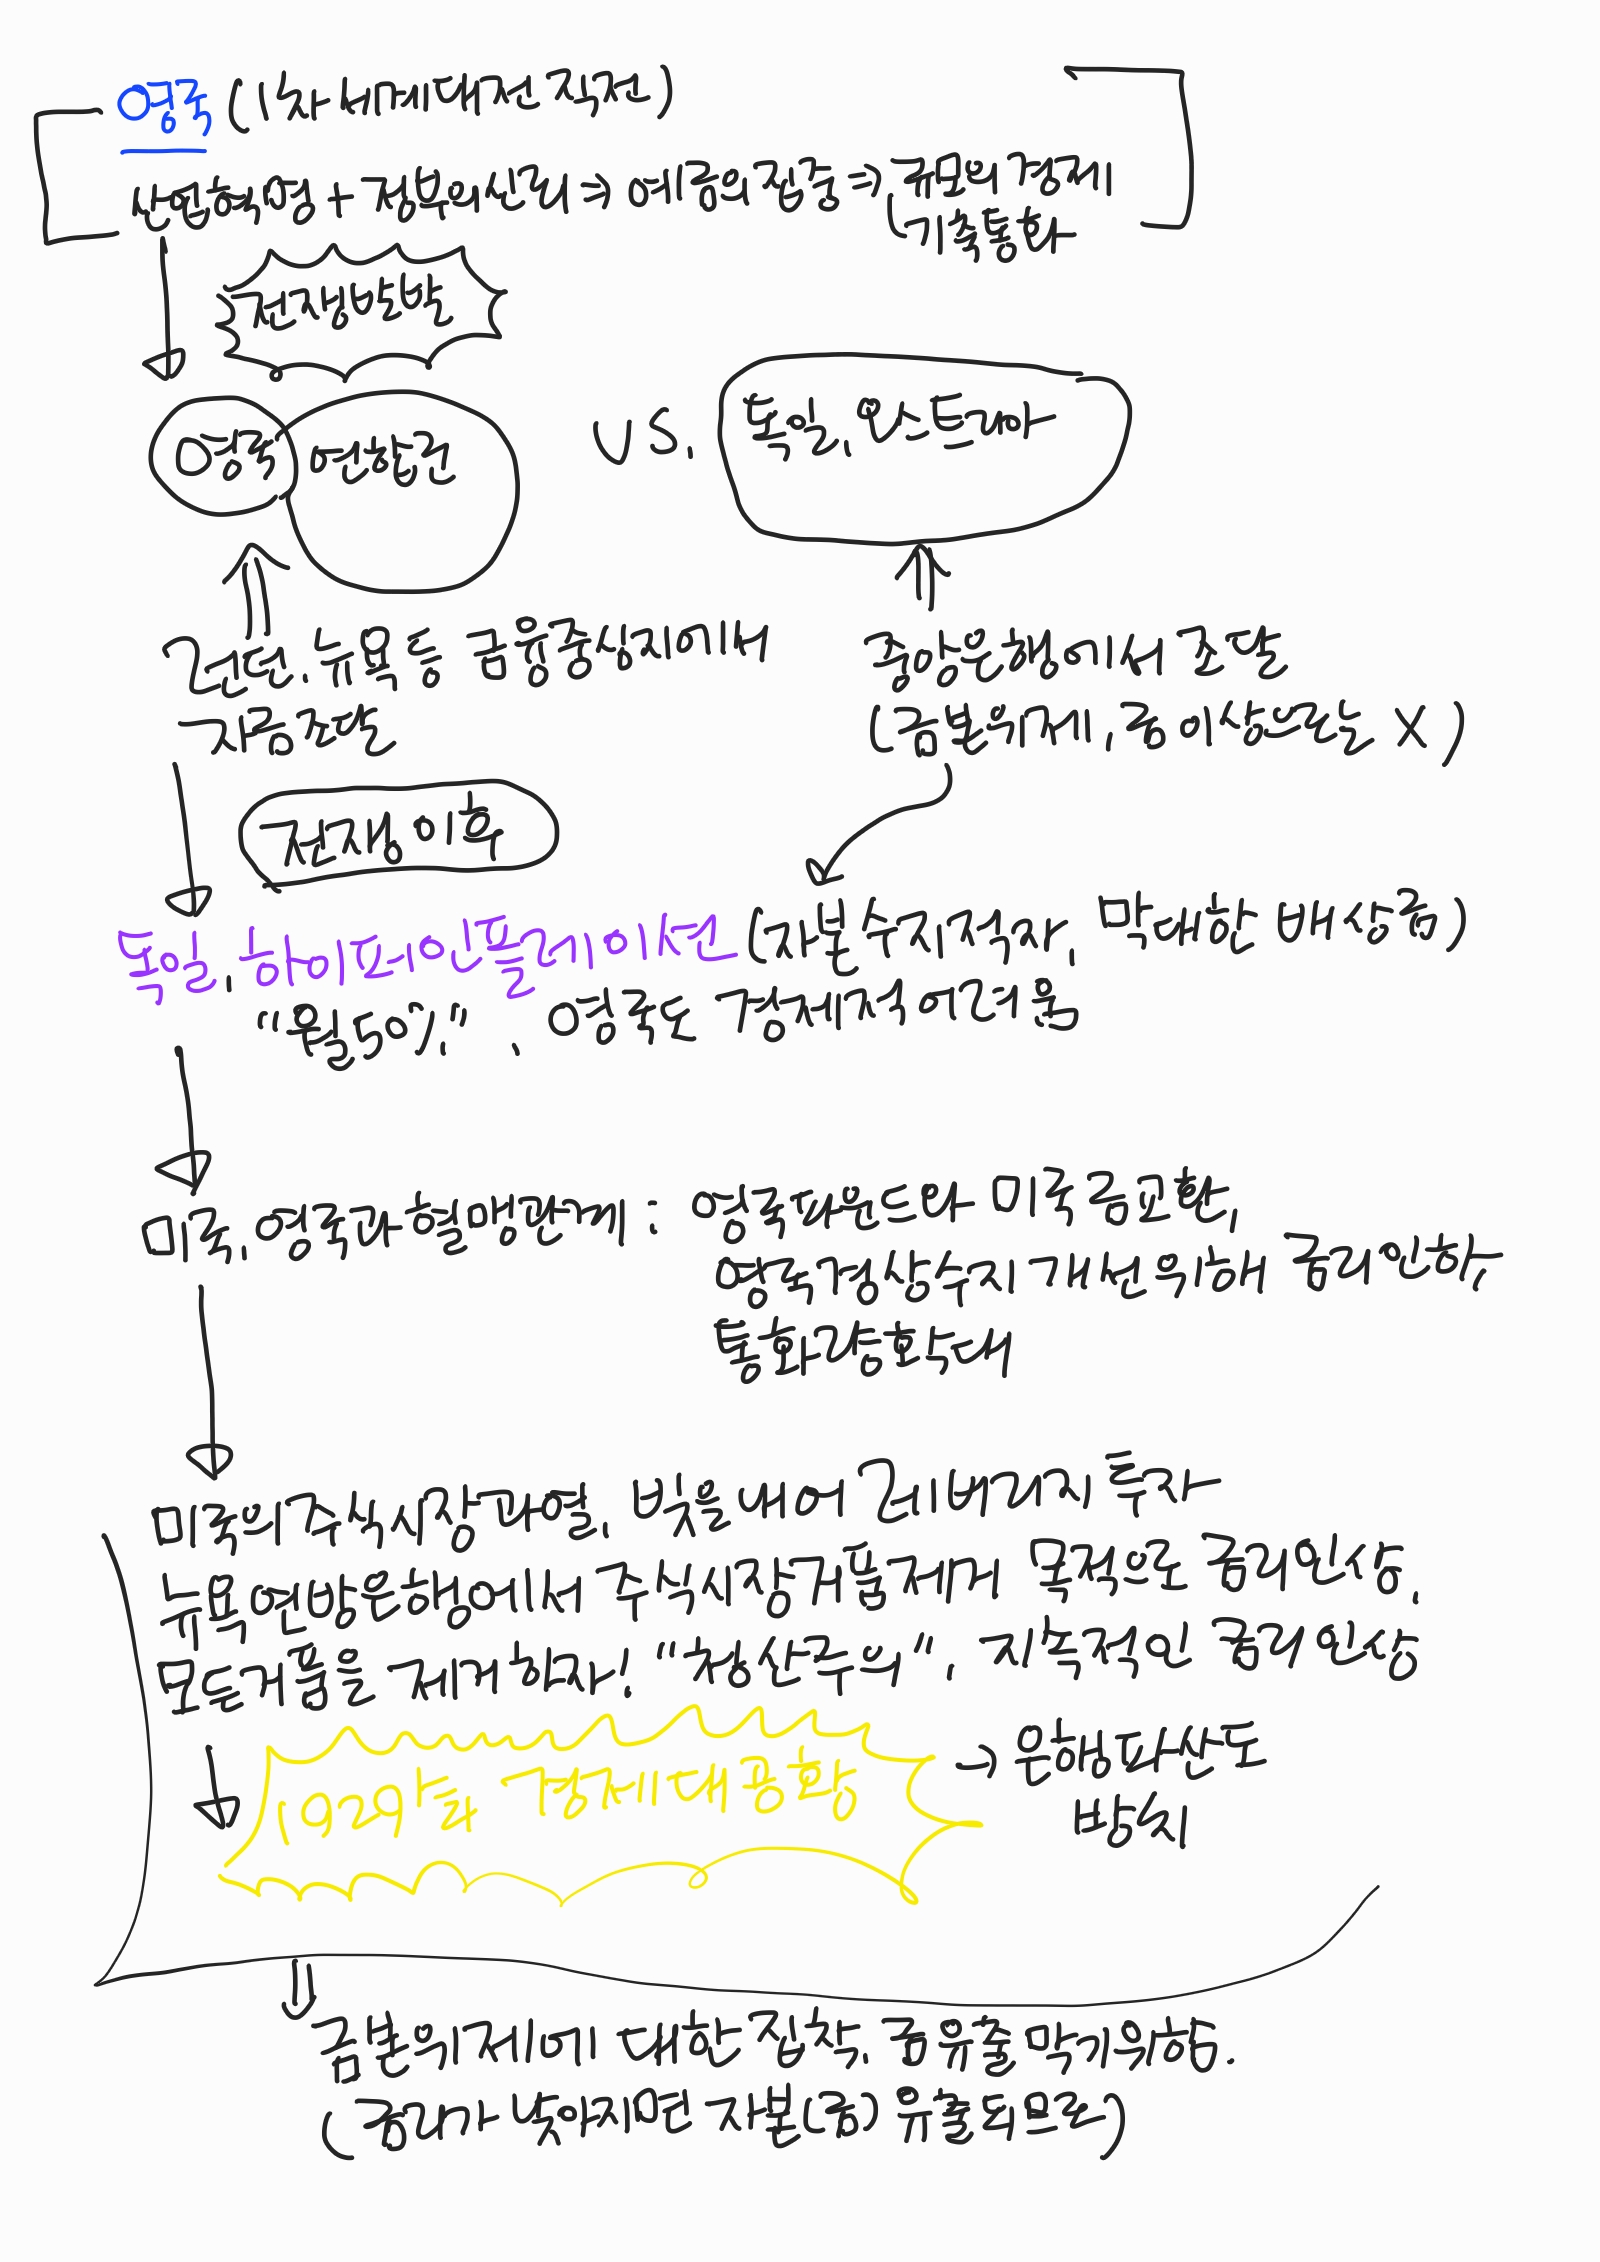 영국 (1차 세계대전 직전)
산업혁명 + 정부의 신뢰 ⇒ 예금의 집중 ⇒ 규모의 경제
기축통화
전쟁발발
영국 연합군 VS. 독일, 오스트리아
런던, 뉴욕 등 금융중심지에서
자금조달
중앙은행에서 조달
(금본위제, 금 이상으로는 X)
전쟁 이후
독일, 하이퍼인플레이션 (자본수지적자, 막대한 배상금)
"월50%", 영국도 경제적 어려움
미국, 영국과 혈맹관계 : 영국파운드와 미국 금교환,
영국경상수지 개선위해 금리인하,
통화량확대
미국의 주식시장과열, 빚을내어 레버리지 투자
뉴욕연방은행에서 주식시장거품제거 목적으로 금리인상,
모든거품을 제거하자! "청산주의", 지속적인 금리인상
1929년 경제대공황 → 은행파산도
방치
금본위제에 대한 집착, 금 유출막기위함.
(금리가 낮아지면 자본(금) 유출되므로)